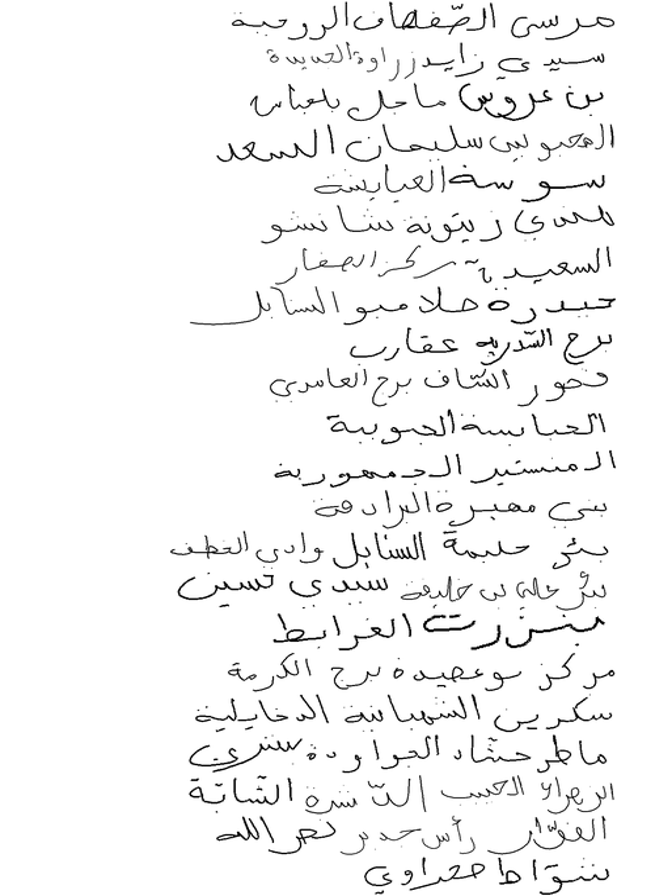 مرسى الصّفصاف الروحية
سيدي زايد زراوة الجديدة
بن عروس ماجل بلعباس
سليمان السعد
سوسة العيايشة
زيتونة شانشو
السعيدية مركز الصفار
حيدرة السنابل
برج السّدرية عقارب
الشّاف برج العامري
العباسة الجنوبية
المنستير الجمهورية
بني البرادعة
بئر حليمة السنابل وادي
بئر علي بن خليفة سيدي حسين
بنزرت الغرابط
مركز بوعصيدة برج الكرمة
سكرين الشهبانية الدخايلية
ماطر حشّاد الجواودة
الزهراء الحبيب الشّابّة
الفوّار رأس جدير نصر الله
شوّاط صحراوي